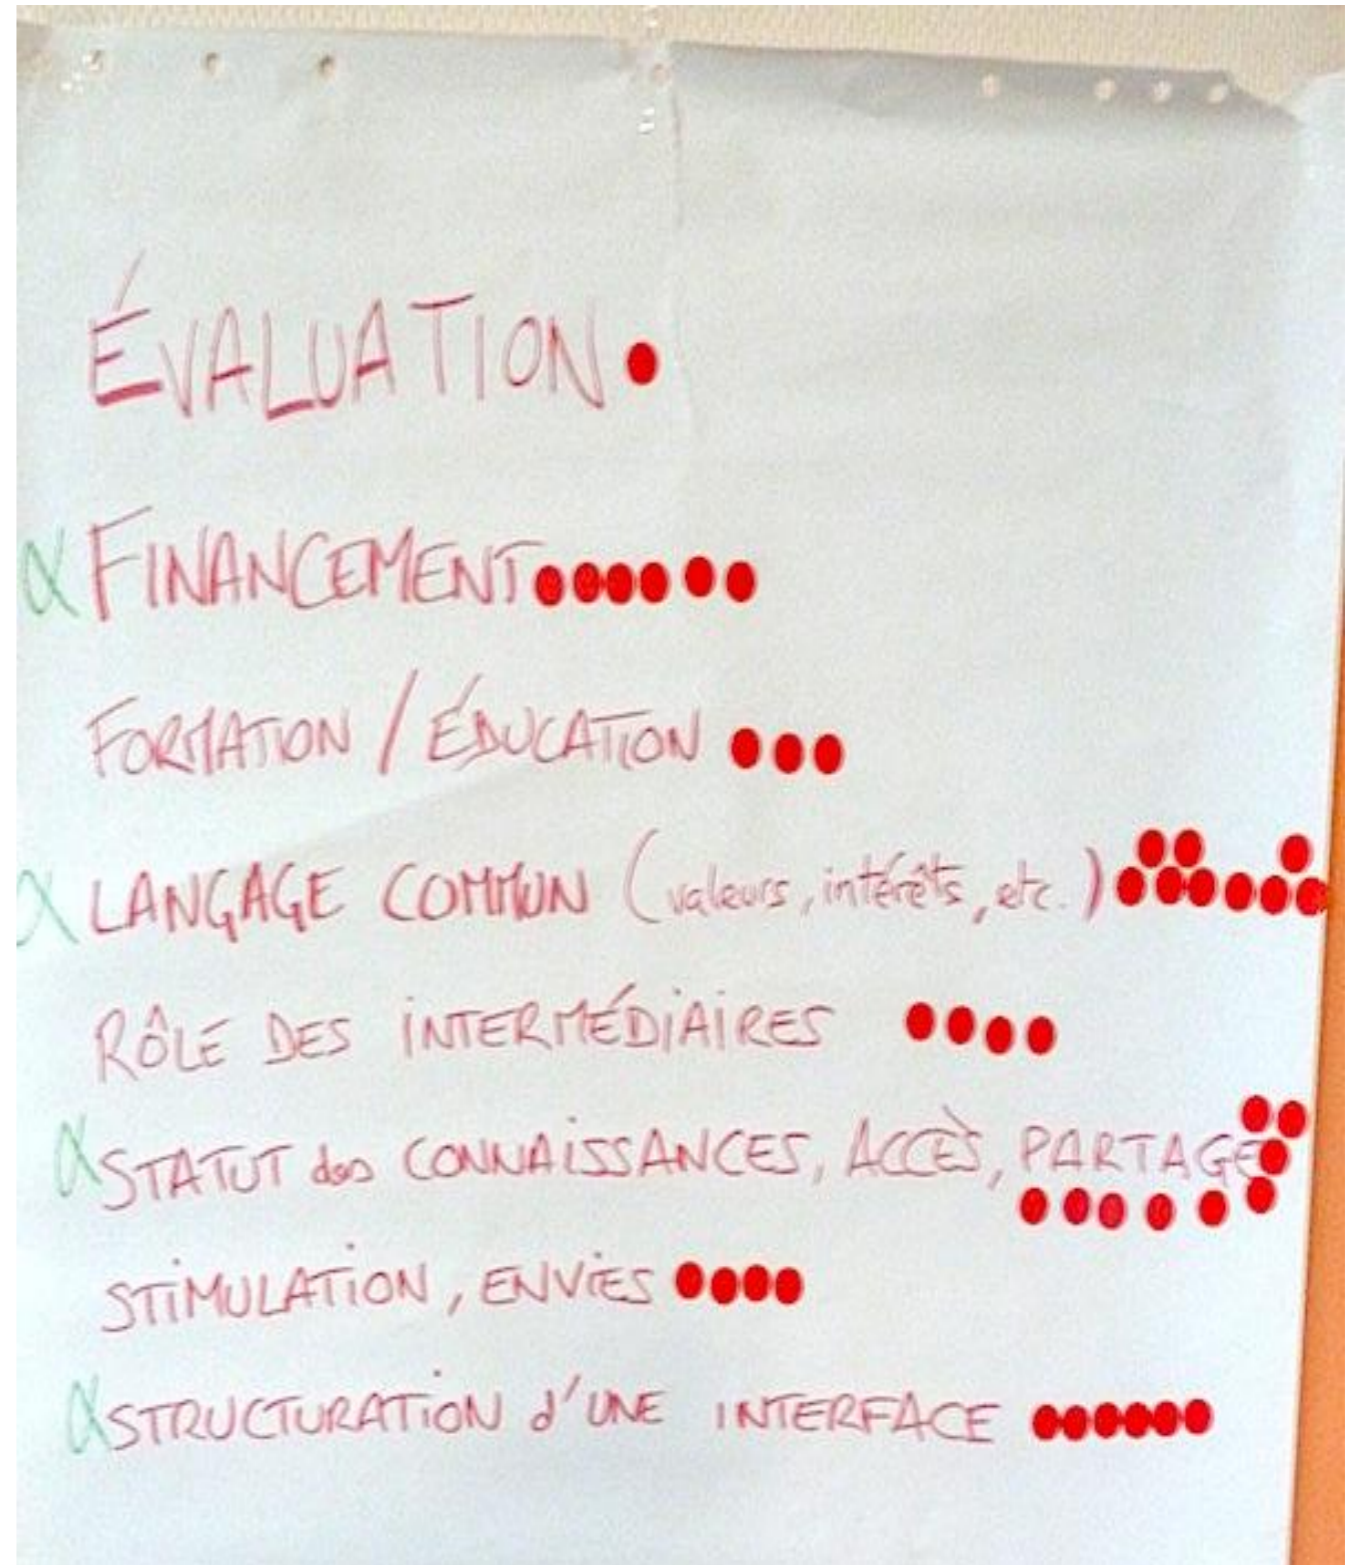 ÉVALUATION
α FINANCEMENT
FORMATION / ÉDUCATION
α LANGAGE COMMUN (valeurs, intérêts, etc.)
RÔLE DES INTERMÉDIAIRES
α STATUT des CONNAISSANCES, ACCÈS, PARTAGE
STIMULATION, ENVIES
α STRUCTURATION d'UNE INTERFACE